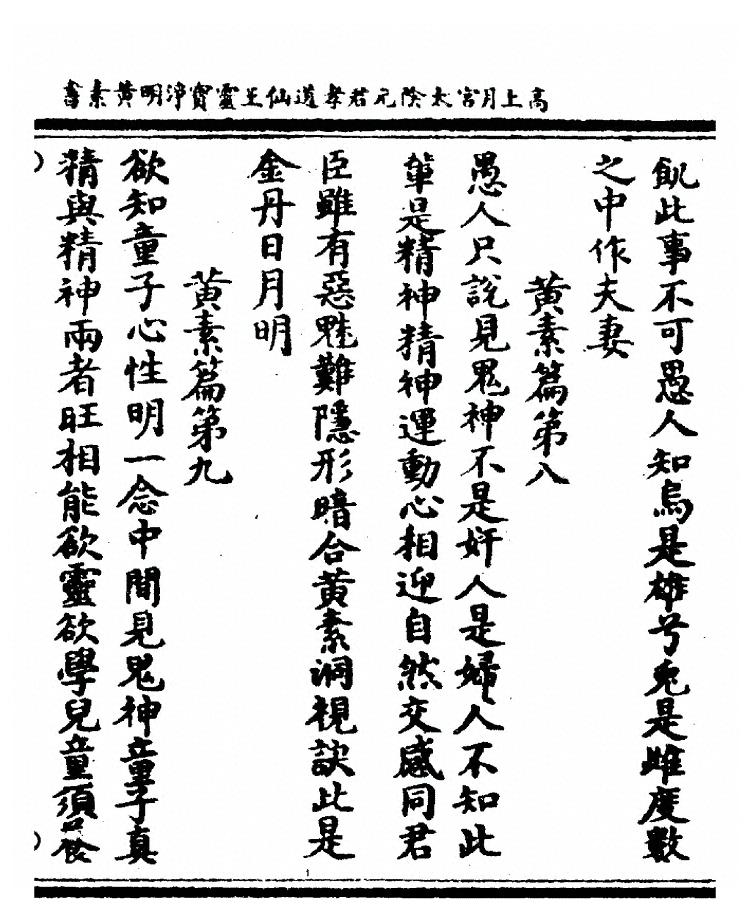 高上月宮太陰元君孝道仙王靈寶淨明黃素書
飢此事不可愚人知烏是雄兮兎是雌度數
之中作夫妻
黃素篇第八
愚人只說見鬼神不是奸人是婦人不知此
輩是精神精神運動心相迎自然交感同君
臣雖有惡魅難隱形暗合黃素洞視訣此是
金丹日月明
黃素篇第九
欲知童子心性明一念中間見鬼神童子真
精與精神兩者旺相能欲靈欲學兒童須